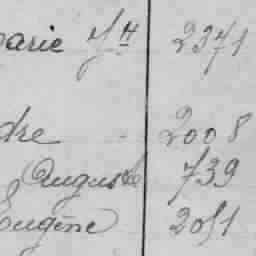 arie J H 2371
dre 2008
Auguste 739
Eugène 2051